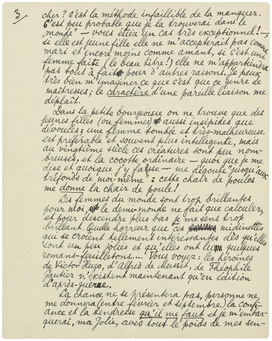 3/
cher? C'est la méthode infaillible de la manquer.
C'est peu probable que je la trouverai dans le
monde — vous étiez un cas très exceptionnel! —
si elle est jeune fille elle ne m'accepterait pas comme
mari et encore moins comme amant, si c'est une
femme faite (le beau titre!) elle ne m'appartiendra
pas tout à fait pour d'autres raisons. Je peux
très bien m'imaginer ce que c'est que ce genre de
maîtresses; le caractère d'une pareille liaison me
déplaît.
Dans la petite bourgeoisie on ne trouve que des
jeunes filles (ou femmes) aussi insipides que
dévouées; une femme tombée et très malheureuse
est préférable et souvent plus intelligente, mais
au vingtième siècle ces créatures sont peu nom-
breuses, et la cocotte ordinaire — quoi que je me
dise et quoique j'y fasse — me dégoûte jusqu'aux
tréfonds de moi-même: cette chair de poules
me donne la chair de poule!
Les femmes du monde sont trop brillantes
pour moi, le demi-monde ne fait que calculer,
et pour descendre plus bas je me sens trop
brillant. Quelle horreur que ces midinettes
qui se croient tellement intéressantes dès qu'elles
sont un peu jolies et qu'elles ont lu quelques
romans-feuilletons... Vous voyez: les héroïnes
de Victor Hugo, d'Alfred de Musset, de Théophile
Gautier n'existent maintenant qu'en édition
d'après-guerre.
La chance ne se présentera pas, personne ne
me donnera (entre février et septembre) la confi-
ance et la tendresse qu'il me faut et je m'embar-
querai, ma jolie, avec tout le poids de mes sen-